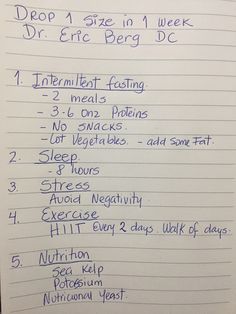 DROP 1 SIZE IN 1 WEEK
Dr. Eric Berg DC
1. Intermiltent fasting.
- 2 meals
- 3-6 Onz Proteins
- No SNACKS.
- Lot Vegetables. - add Some Fat.
2. Sleep.
- 8 hours
3. Stress
Avoid Negativity.
4. Exercise
HIIT Every 2 days. Walk of days.
5. Nutrition
Sea Kelp
Potassium
Nutricional Yeast.